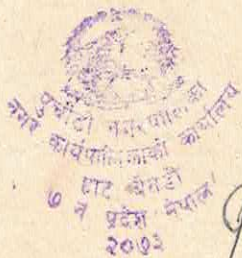 पुर्चौडी नगरपालिका
नगर कार्यपालिकाको कार्यालय
हाट बैतडी
७ नं प्रदेश नेपाल
२०७३